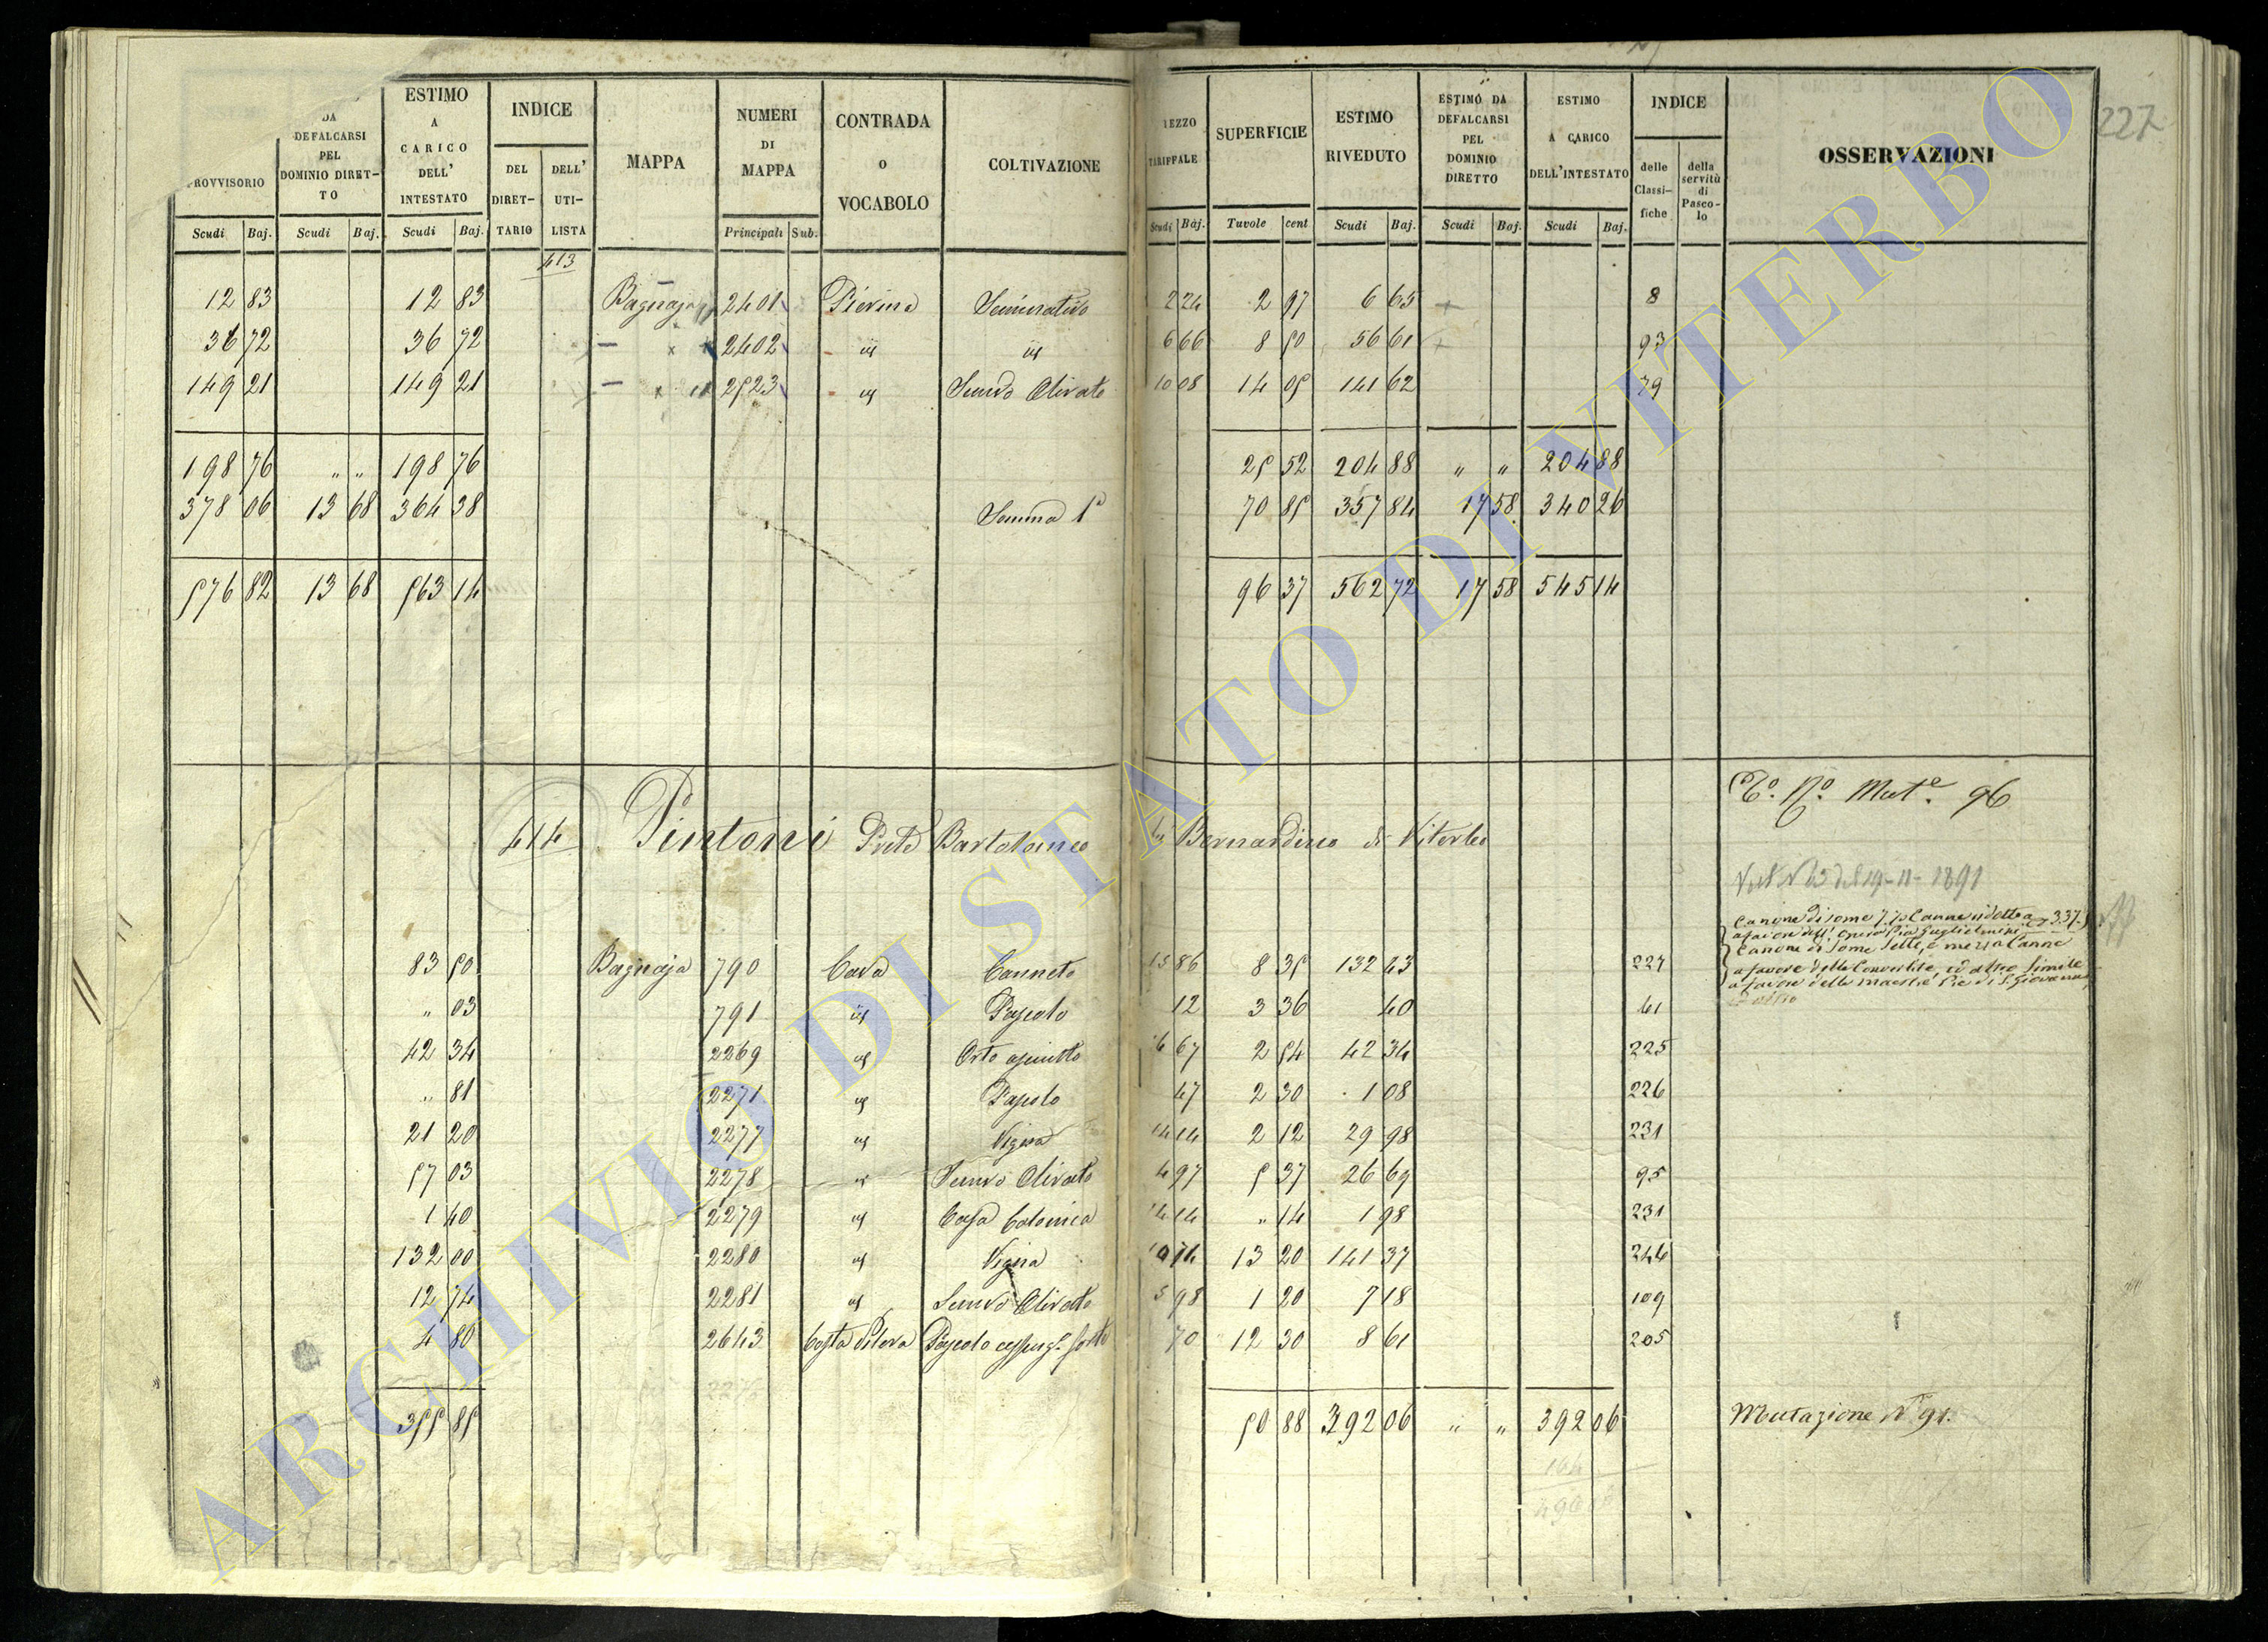 227
ESTIMO A CARICO DELL' INTESTATO
INDICE
MAPPA
NUMERI DI MAPPA
CONTRADA O VOCABOLO
COLTIVAZIONE
SUPERFICIE
ESTIMO RIVEDUTO
ESTIMO DA DEFALCARSI PEL DOMINIO DIRETTO
ESTIMO A CARICO DELL'INTESTATO
INDICE
OSSERVAZIONI
DA DEFALCARSI PEL DOMINIO DIRET-TO
DEL DIRET-TARIO
DELL' UTI-LISTA
TARIFFALE
delle Classi-fiche
della servitù di Pasco-lo
Scudi Baj. Scudi Baj. Scudi Baj. Principali Sub. Scudi Baj. Tavole cent Scudi Baj. Scudi Baj. Scudi Baj.
413
12 83 12 83 Bagnaja 2401 Pierina Seminativo 2 24 2 97 6 65 8
36 72 36 72 2402 6 66 8 50 56 61 93
149 21 149 21 2523 Semvo Olivato 10 08 14 05 141 62 79
198 76 " " 198 76 25 52 204 88 " " 204 88
378 06 13 68 364 38 Somma 1a 70 85 357 84 17 58 340 26
576 82 13 68 563 14 96 37 562 72 17 58 545 14
Mute. 96
414 Pintoni Prete Bartolomeo Bernardino di Viterbo
19-11-1891
Canone di some 7.
a favore dell' Opera Pia
Canone di some sette, e mezza Canne
a favore delle Convertite, ed altro simile
a favore delle maestre Pie di S. Giovanni
83 50 Bagnaja 790 Cava Canneto 15 86 8 35 132 43 227
" 03 791 Pascolo 12 3 36 40 61
42 34 2269 Orto asciutto 16 67 2 54 42 34 225
" 81 2271 Pascolo 47 2 30 1 08 226
21 20 2277 Vigna 14 14 2 12 29 98 231
57 03 2278 Semvo Olivato 4 97 5 37 26 69 95
1 40 2279 Casa Colonica 14 14 " 14 1 98 231
132 00 2280 Vigna 13 20 141 37 246
12 74 2281 Semvo Olivato 5 98 1 20 7 18 109
4 80 2643 Costa Pascolo cespugl. forte 70 12 30 8 61 205
355 85 50 88 392 06 " " 392 06 Mutazione N 91.
ARCHIVIO DI STATO DI VITERBO